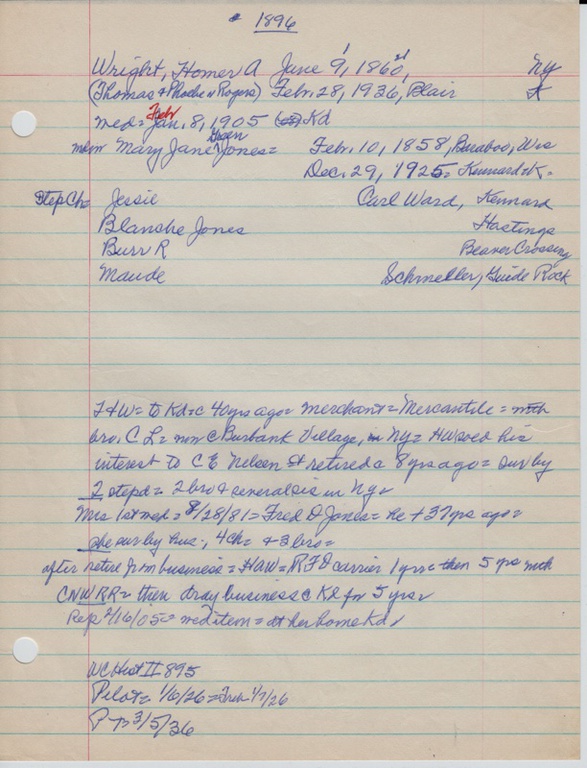 1896
Wright, Homer A June 9, 1860, NY
(Thomas & Phoebe Rogers) Feb. 28, 1936, Blair K
med = Feb Jan. 8, 1905 Kd
Mary Jane Green Jones = Feb. 10, 1858, Baraboo, Wis
Dec. 29, 1925 = Kennard = K =
Step Ch = Jessie Carl Ward, Kennard
Blanche Jones Hastings
Burr R Beaver Crossing
Maude Schmeller, Guide Rock
= to Kd = c 40 yrs ago = merchant = Mercantile = with
bro. C L = Burbank Village, in NY = HW sold his
interest to C E Nelsen & retired c 8 yrs ago = sur by
2 stepd = 2 bro & several sis in Ny =
Mrs 1st med = 8/28/81 = Fred D Jones = he + 37 yrs ago =
she sur by hus., 4 ch = & 3 bro =
after retire frm business = HAW = RFD carrier 1 yr = then 5 yrs with
CNW RR = then dray business c Kd for 5 yrs
Rep 2/16/05 = med item = at her home Kd
WC Hist II 895
Pilot = 1/6/26 = 1/7/26
P T 3/5/36